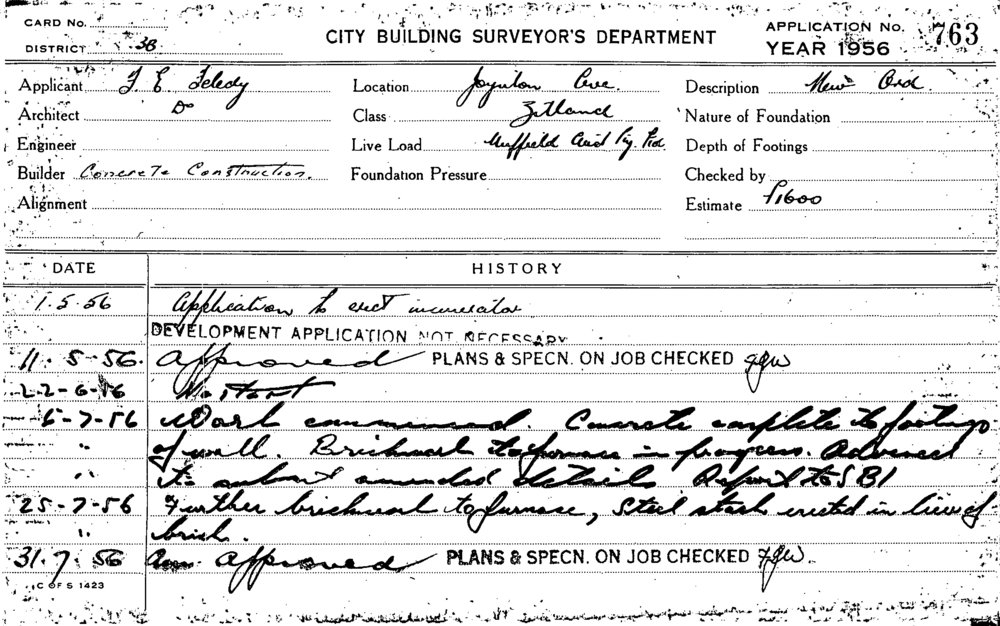 CARD No.
DISTRICT 3B
CITY BUILDING SURVEYOR'S DEPARTMENT
APPLICATION No. 763
YEAR 1956
Applicant F E Feledy Location Joynton Ave. Description New Ord.
Architect Do Class Zetland Nature of Foundation
Engineer Live Load Nuffield Aust Pty. Ltd. Depth of Footings
Builder Concrete Construction. Foundation Pressure Checked by
Alignment Estimate £1600
DATE HISTORY
1.5.56 Application to erect incinerator
DEVELOPMENT APPLICATION NOT NECESSARY
11.5.56. Approved PLANS & SPECN. ON JOB CHECKED
22-6-56 No start
5-7-56 Work commenced. Concrete complete to footings
" of wall. Brickwork to furnace in progress. Advised
" to submit amended details Report to SBI
25-7-56 Further brickwork to furnase, Steel stack erected in lieu of
" brick.
31.7.56 Am. Approved PLANS & SPECN. ON JOB CHECKED
C OF S 1423